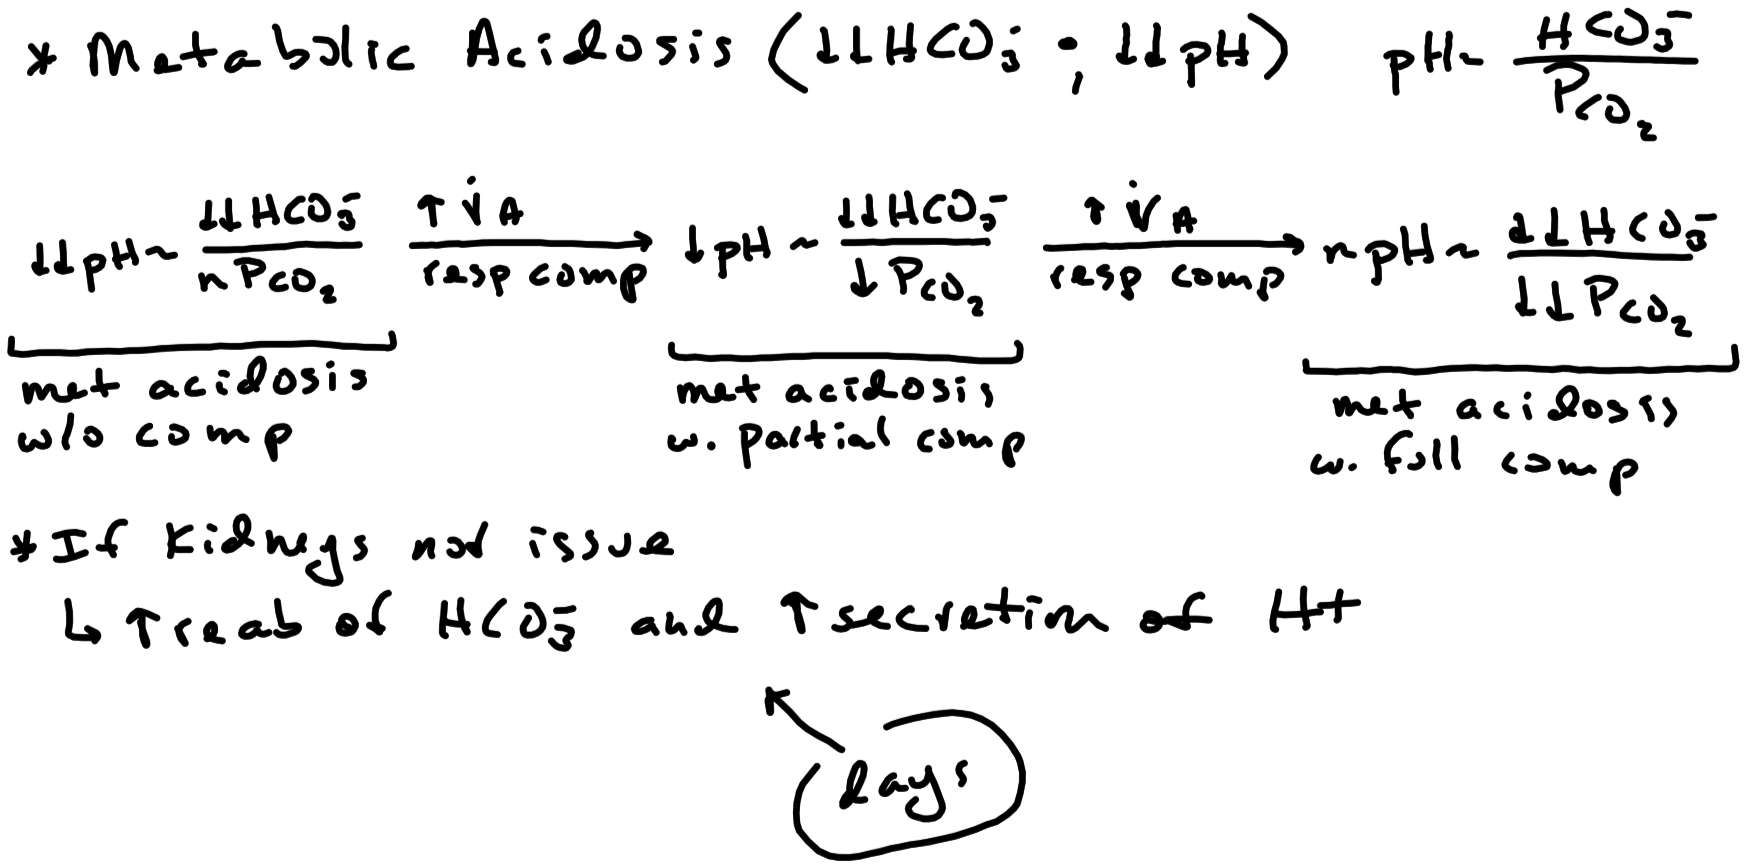 * Metabolic Acidosis (↓↓HCO₃⁻; ↓↓pH) pH~ HCO₃⁻ / P_CO₂
↓↓pH~ ↓↓HCO₃⁻ / n P_CO₂ ↑V̇A → resp comp ↓pH ~ ↓↓HCO₃⁻ / ↓P_CO₂ ↑V̇A → resp comp n pH~ ↓↓HCO₃⁻ / ↓↓P_CO₂
met acidosis met acidosis met acidosis
w/o comp w. partial comp w. full comp
* If kidneys not issue
↳ ↑reab of HCO₃⁻ and ↑secretion of H+
days